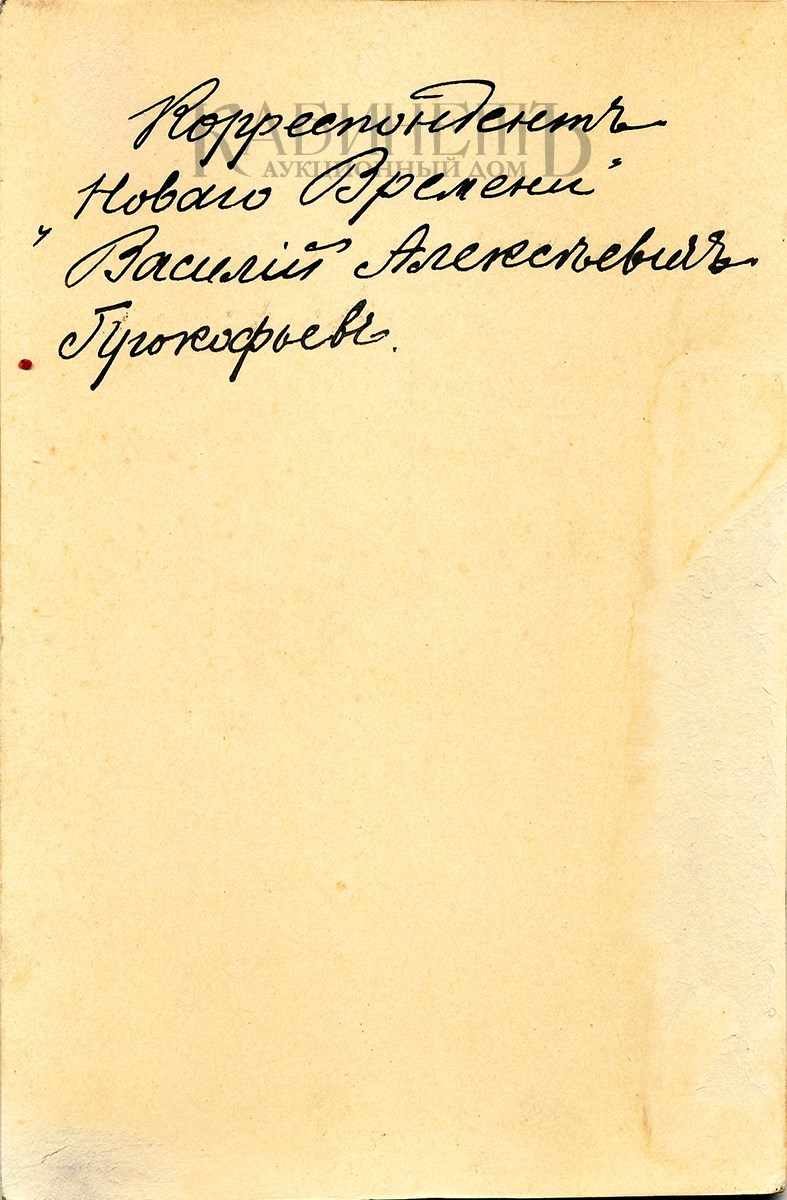 КАБИНЕТЪ
АУКЦИОННЫЙ ДОМ
Корреспондентъ
„Новаго Времени“
Василій Алексѣевичъ
Прокофьевъ.